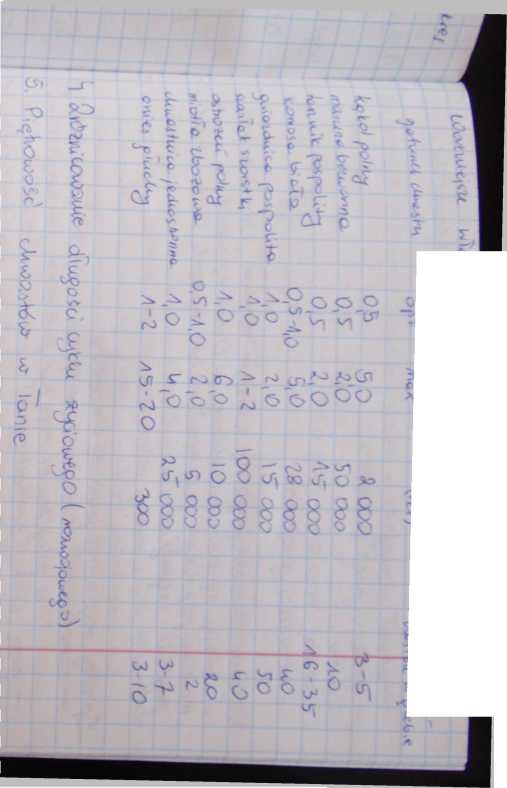 gatunek chwastu opt max
kąkol polny 0,5 5,0 2 000 3-5
0,5 2,0 50 000 10
rumnik pospolity 0,5 2,0 15 000 16-35
komosa biała 0,5-1,0 5,0 28 000 40
gwiazdnica pospolita 1,0 2,0 15 000 50
1,0 1-2 100 000 40
polny 1,0 6,0 10 000 20
miotła zbożowa 0,5-1,0 2,0 5 000 2
chwastnica jednostronna 1,0 4,0 25 000 3-7
owies głuchy 1-2 15-20 300 3-10
4 Zróżnicowanie długości cyklu życiowego (rozwojowego)
5. Piętrowość chwastów w łanie